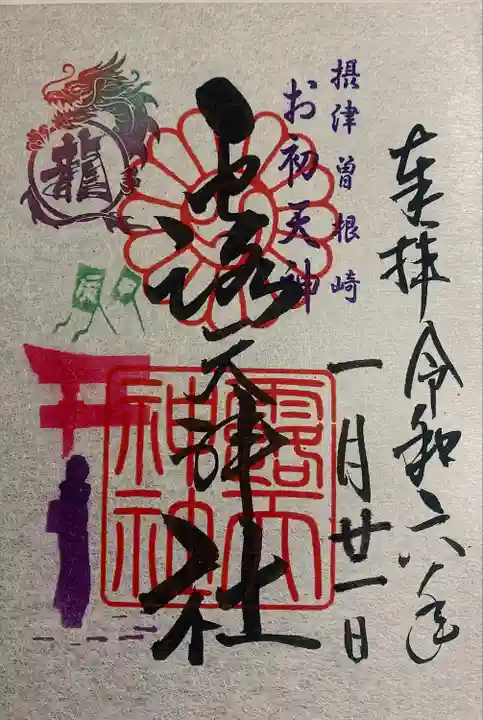 奉拝 令和六年
一月廿一日
摂津 曽根崎
お初天神
露天神社
露天
神社
龍
辰